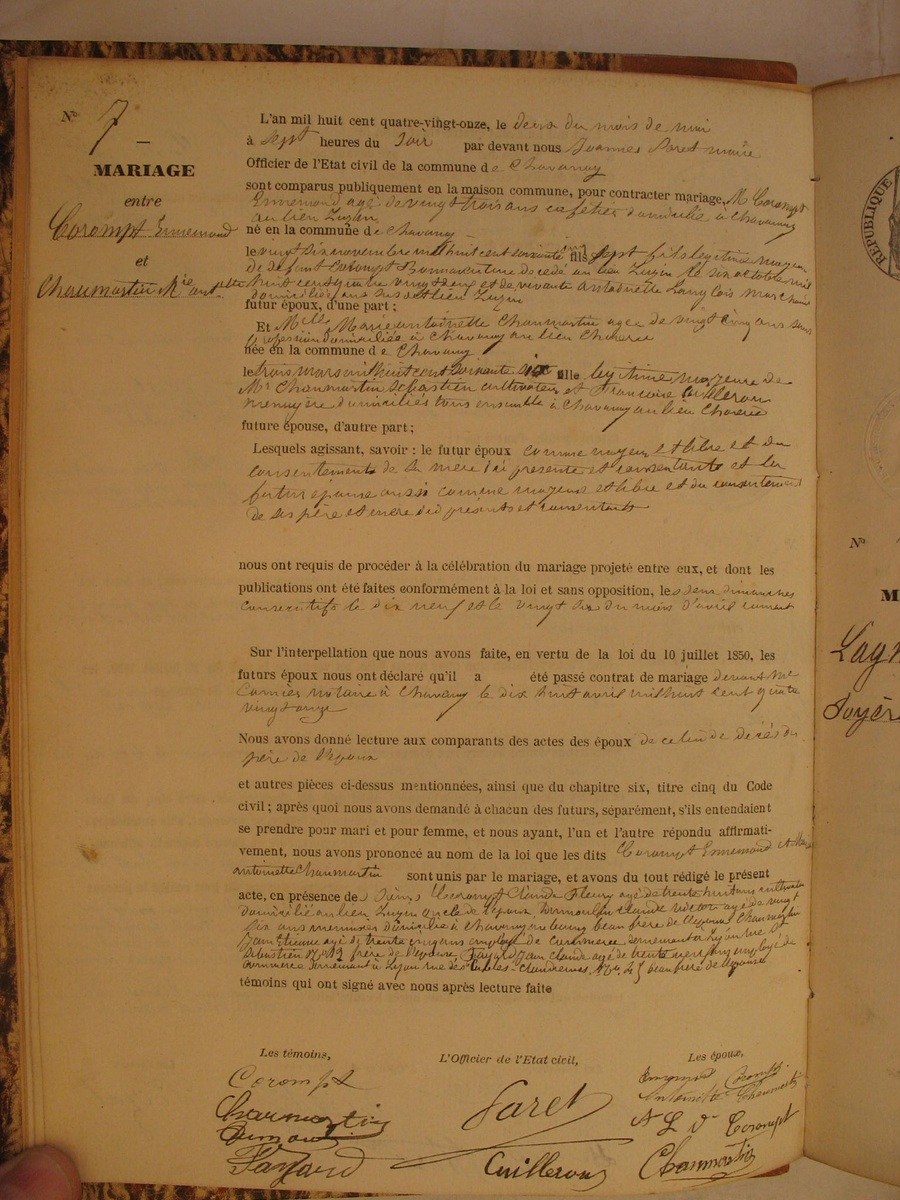 N° 7
MARIAGE
entre
Corompt Ennemond
et
Chaumartin Mie antoinette
L'an mil huit cent quatre-vingt-onze, le deux du mois de mai
à sept heures du soir par devant nous Joannes Paret maire
Officier de l'Etat civil de la commune de Chavanay
sont comparus publiquement en la maison commune, pour contracter mariage, M Corompt
Ennemond agé de vingt trois ans cafetier domicilié à Chavanay
au lieu Luzin
né en la commune de Chavanay
le vingt six novembre mil huit cent soixante sept fils légitime majeur
de défunt Corompt Bonnaventure décédé au lieu Luzin le six octobre mil
huit cent quatre vingt deux et de vivante antoinette Langlois
domiciliée au susdit lieu Luzin
futur époux, d'une part ;
Et Melle Marie antoinette Chaumartin agée de vingt cinq ans sans
profession domiciliée à Chavanay au lieu
née en la commune de Chavanay
le trois mars mil huit cent soixante six fille légitime majeure de
Mr Chaumartin Sébastien cultivateur et Francoise Cuilleron
ménagère domiciliés tous ensemble à Chavanay au lieu
future épouse, d'autre part ;
Lesquels agissant, savoir : le futur époux comme majeur et libre et du
consentement de sa mère ici présente et consentante et la
future épouse aussi comme majeure et libre et du consentement
de ses père et mère ici présents et consentants
nous ont requis de procéder à la célébration du mariage projeté entre eux, et dont les
publications ont été faites conformément à la loi et sans opposition, les deux dimanches
consécutifs le dix neuf et le vingt six du mois d'avril
Sur l'interpellation que nous avons faite, en vertu de la loi du 10 juillet 1850, les
futurs époux nous ont déclaré qu'il a été passé contrat de mariage devant Me
notaire à Chavanay le dix huit avril mil huit cent quatre
vingt onze
Nous avons donné lecture aux comparants des actes des époux de celui de décés du
père de l'époux
et autres pièces ci-dessus mentionnées, ainsi que du chapitre six, titre cinq du Code
civil ; après quoi nous avons demandé à chacun des futurs, séparément, s'ils entendaient
se prendre pour mari et pour femme, et nous ayant, l'un et l'autre répondu affirmati-
vement, nous avons prononcé au nom de la loi que les dits Corompt Ennemond et Marie
antoinette Chaumartin sont unis par le mariage, et avons du tout rédigé le présent
acte, en présence des Sieurs Corompt Claude Fleury agé de trente huit ans cultivateur
domicilié au lieu Luzin oncle de l'époux, Dumoulin Claude victor agé de vingt
six ans menuisier domicilié à Chavanay au bourg beau frère de l'époux, Chaumartin
Jean Etienne agé de trente ans employé de commerce demeurant à Lyon rue
Sébastien frère de l'épouse, Fayard Jean claude agé de trente neuf ans employé de
commerce demeurant à Lyon rue des Tables-Claudiennes, No 25 beau frère de l'épouse
témoins qui ont signé avec nous après lecture faite
Les témoins, L'Officier de l'Etat civil, Les époux,
Corompt
Chaumartin
Fayard
Paret
Cuilleron
Corompt
Antoinette Chaumartin
A L Ve Corompt
Chaumartin
RÉPUBLIQUE
N°
M